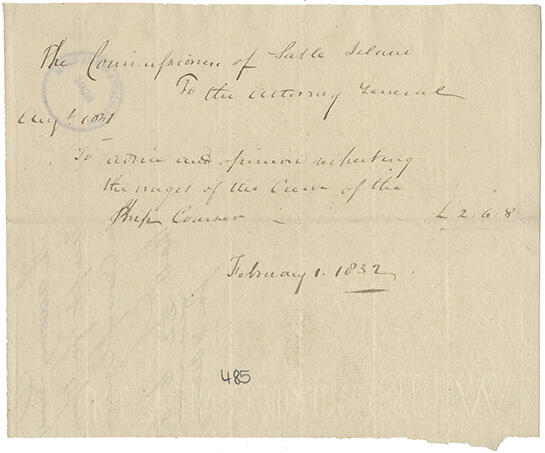 The Commissioners of Sable Island
To the Attorney General
Augt. 1831
To advice and opinion respecting
the wages of the Crew of the
Ship Courser – £ 2:6:8
February 1. 1832
485